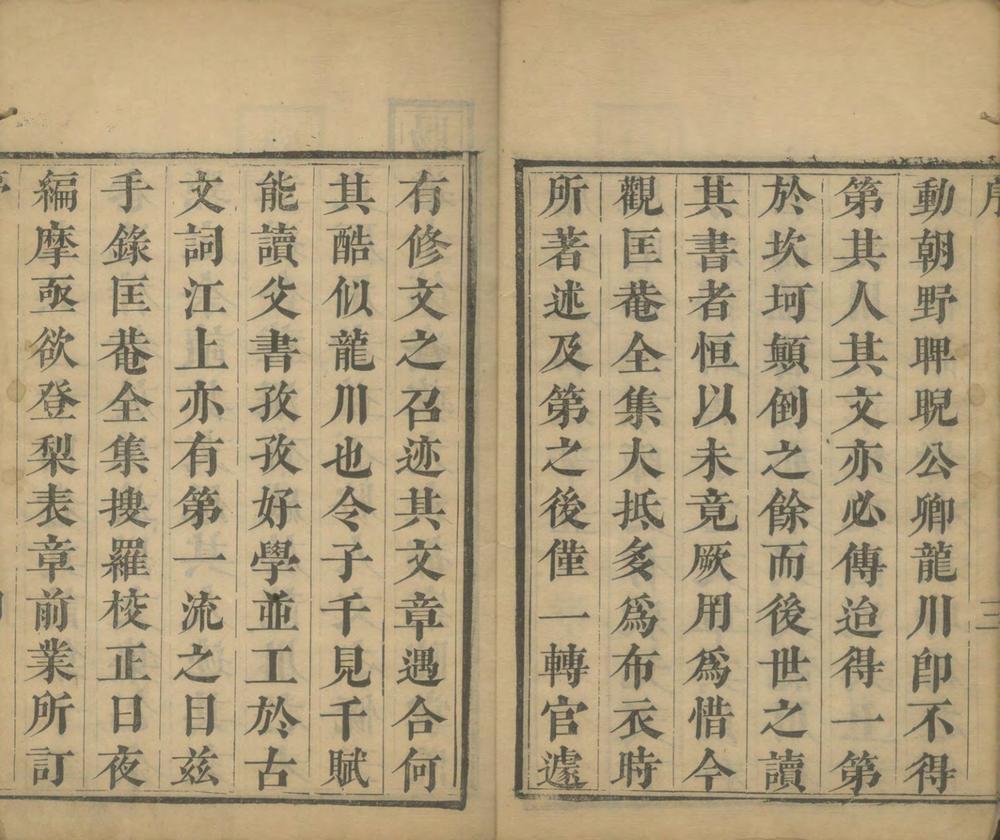 序 三
動朝野睥睨公卿龍川卽不得
第其人其文亦必傳迨得一第
於坎坷顛倒之餘而後世之讀
其書者恒以未竟厥用爲惜今
觀匡菴全集大抵多爲布衣時
所著述及第之後僅一轉官遽
有修文之召迹其文章遇合何
其酷似龍川也令子千見千賦
能讀父書孜孜好學並工於古
文詞江上亦有第一流之目茲
手錄匡菴全集搜羅校正日夜
編摩亟欲登梨表章前業所訂